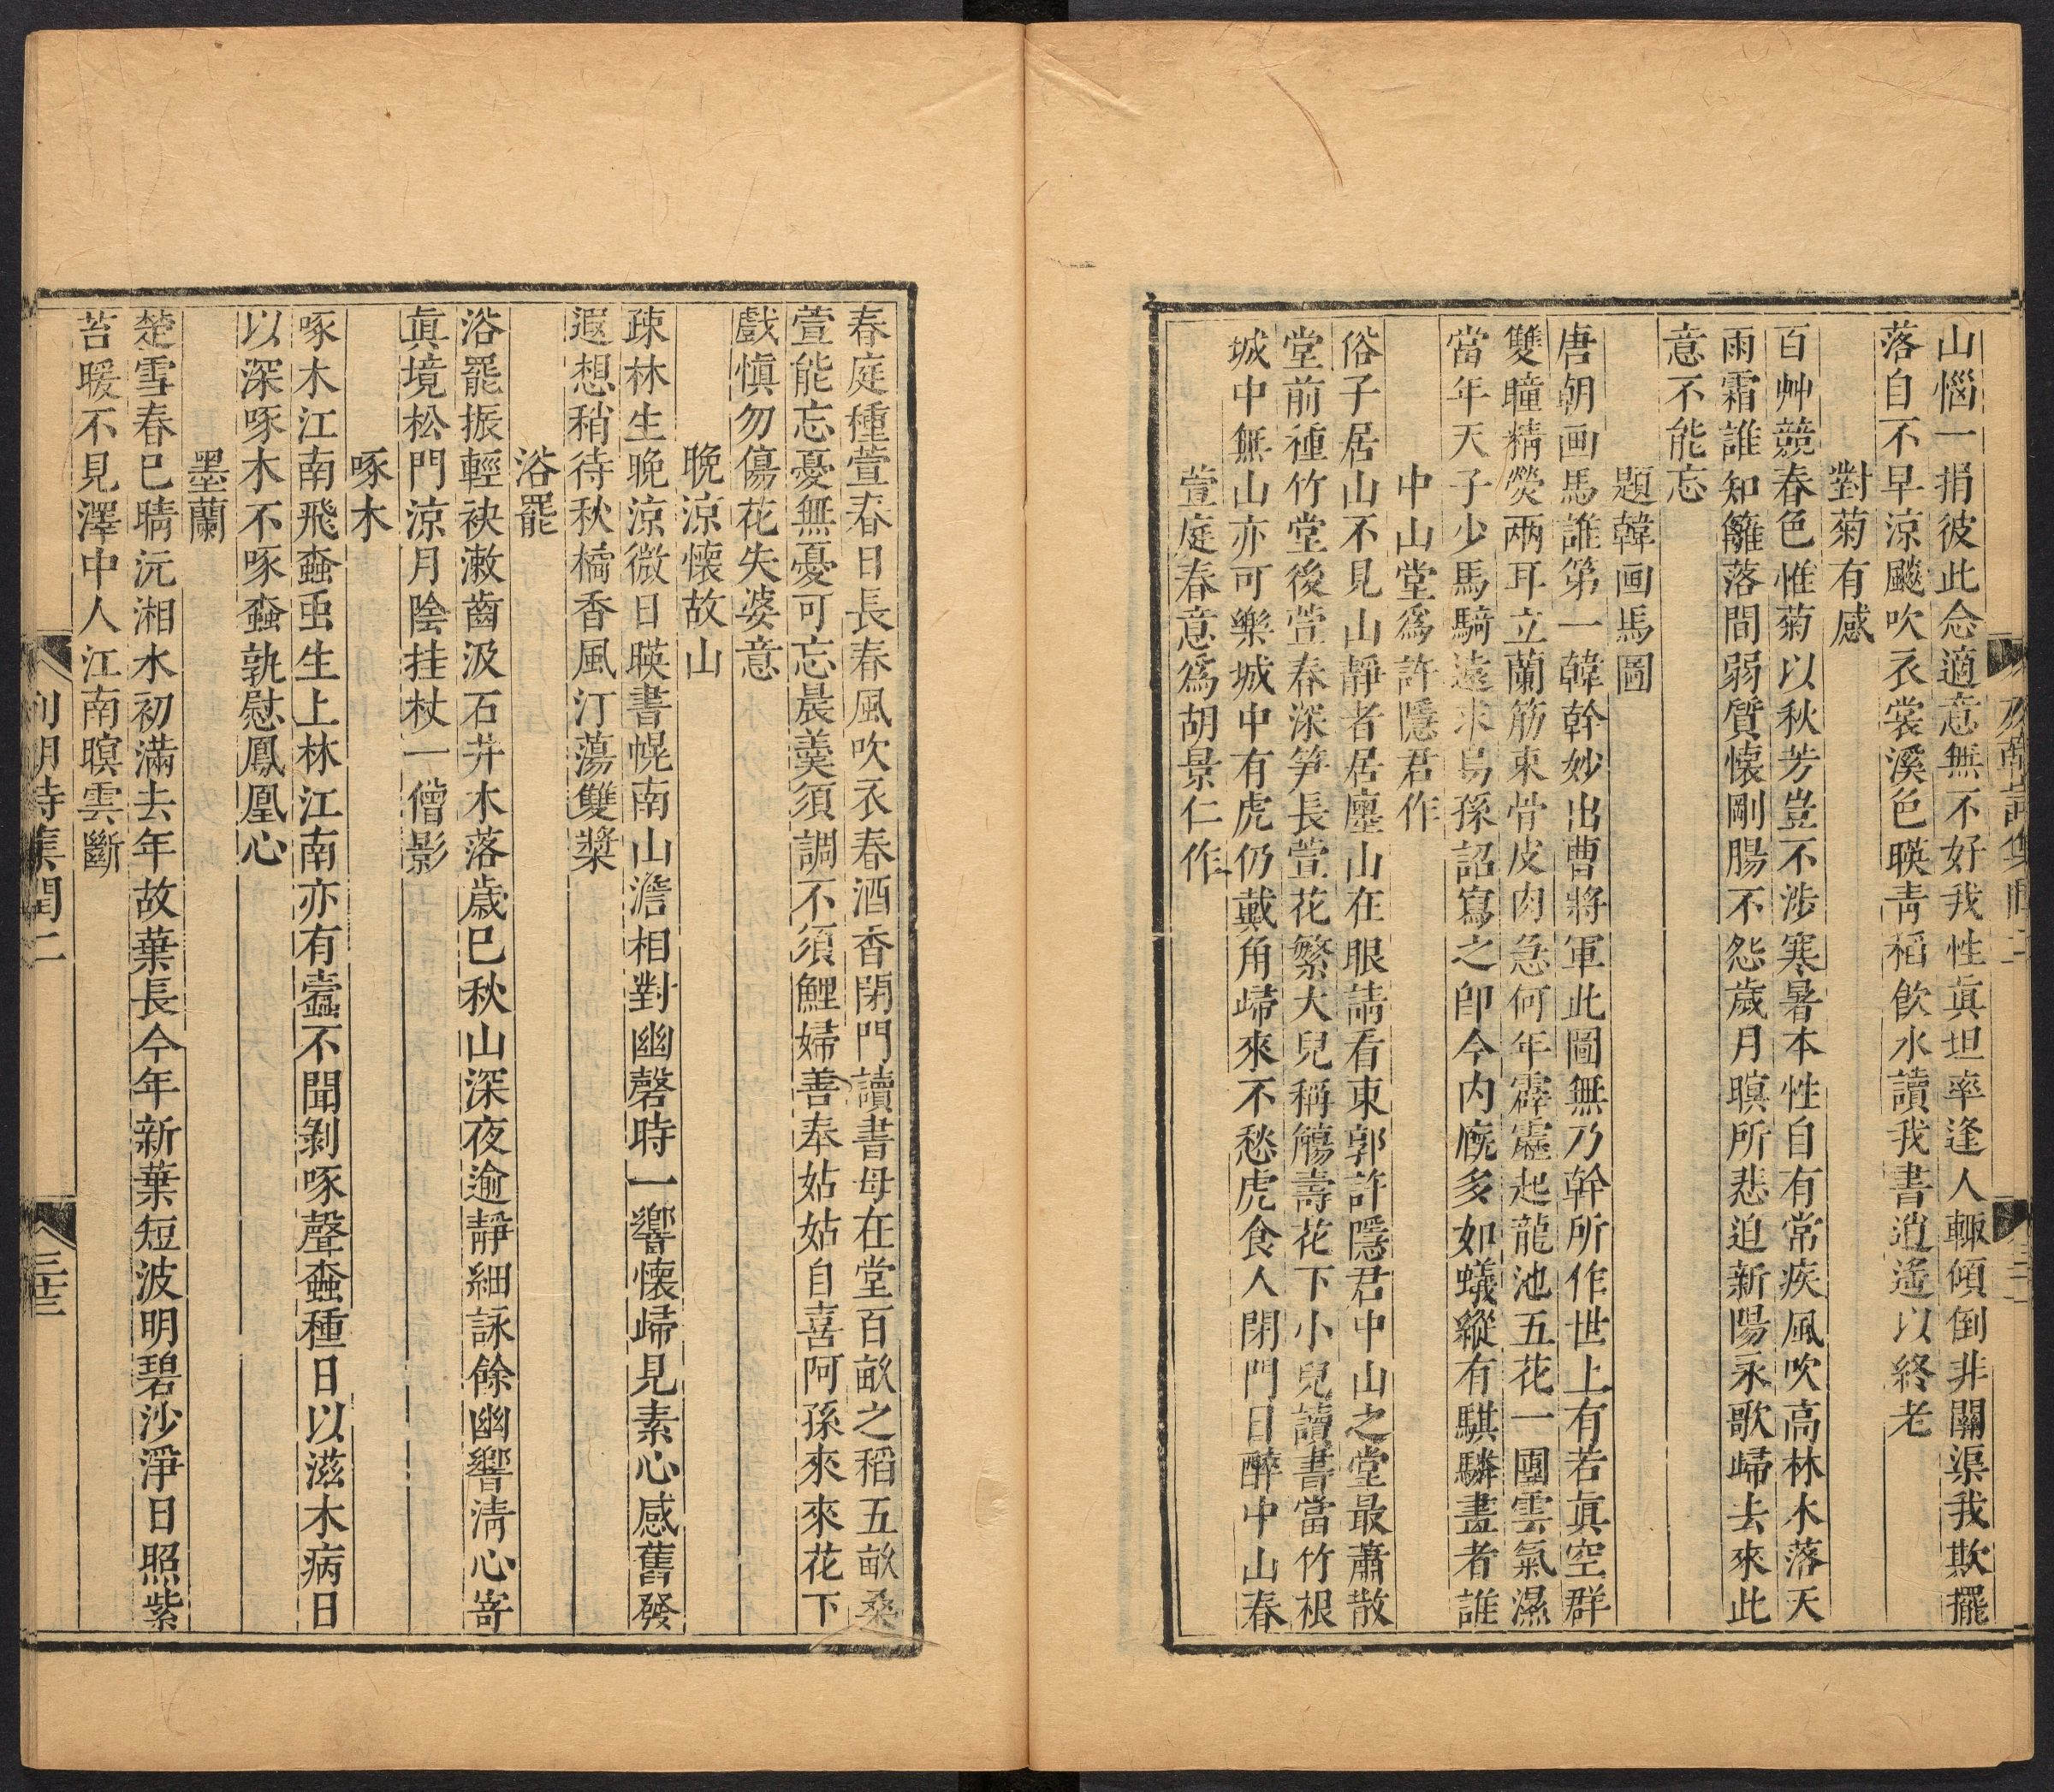 山惱一捐彼此念適意無不好我性眞坦率逢人輙傾倒非關渠我欺擺
落自不早涼颷吹衣裳溪色暎靑稻飮水讀我書逍遙以終老
對菊有感
百艸競春色惟菊以秋芳豈不涉寒暑本性自有常疾風吹高林木落天
雨霜誰知籬落間弱質懷剛腸不怨歲月暝所悲迫新陽永歌歸去來此
意不能忘
題韓画馬圖
唐朝画馬誰第一韓幹妙出曹將軍此圖無乃幹所作世上有若眞空群
雙瞳精熒兩耳立蘭筋束骨皮肉急何年霹靂起龍池五花一團雲氣濕
當年天子少馬騎遠求烏孫詔寫之卽今內廐多如蟻縱有騏驎畫者誰
中山堂爲許隱君作
俗子居山不見山靜者居廛山在眼請看東郭許隱君中山之堂最蕭散
堂前種竹堂後萱春深筍長萱花繁大兒稱觴壽花下小兒讀書當竹根
城中無山亦可樂城中有虎仍戴角歸來不愁虎食人閉門日醉中山春
萱庭春意爲胡景仁作
春庭種萱春日長春風吹衣春酒香閉門讀書母在堂百畝之稻五畝桑
萱能忘憂無憂可忘晨羹須調不須鯉婦善奉姑姑自喜阿孫來來花下
戲愼勿傷花失婆意
晚涼懷故山
疎林生晚涼微日暎書幌南山澹相對幽磬時一響懷歸見素心感舊發
遐想稍待秋橘香風汀蕩雙槳
浴罷
浴罷振輕袂漱齒汲石井木落歲已秋山深夜逾靜細詠餘幽響淸心寄
眞境松門涼月陰挂杖一僧影
啄木
啄木江南飛蝥䖝生上林江南亦有蠹不聞剝啄聲蝥種日以滋木病日
以深啄木不啄蝥孰慰鳳凰心
墨蘭
楚雪春已晴沅湘水初滿去年故葉長今年新葉短波明碧沙淨日照紫
苔暖不見澤中人江南暝雲斷
列朝詩集閏二
三十二